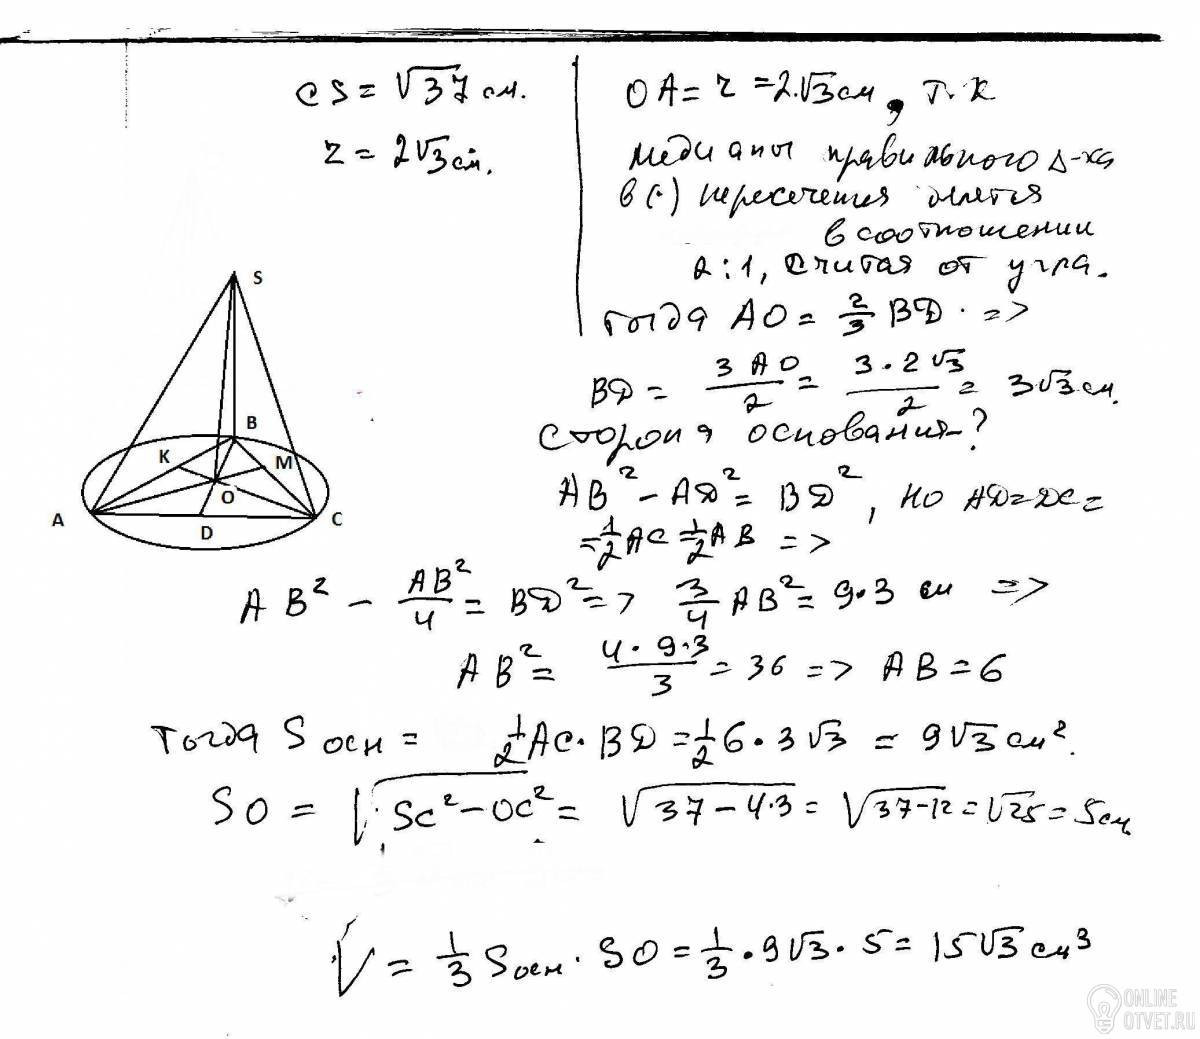 CS = √37 см.
r = 2√3 см.
OA = r = 2·√3 см, т.к
медианы правильного Δ-ка
в (·) пересечения делятся
в соотношении
2:1, считая от угла.
тогда AO = 2/3 BD · =>
BD = 3 AO / 2 = 3·2√3 / 2 = 3√3 см.
сторона основания - ?
AB² - AD² = BD², но AD = DC =
= 1/2 AC = 1/2 AB =>
AB² - AB²/4 = BD² => 3/4 AB² = 9·3 см =>
AB² = 4·9·3 / 3 = 36 => AB = 6
Тогда S осн = 1/2 AC · BD = 1/2 6 · 3√3 = 9√3 см².
SO = √(SC² - OC²) = √(37 - 4·3) = √(37-12) = √25 = 5 см
V = 1/3 Sосн · SO = 1/3 · 9√3 · 5 = 15√3 см³
S
B
K
M
O
A
D
C
ONLINE
OTVET.RU